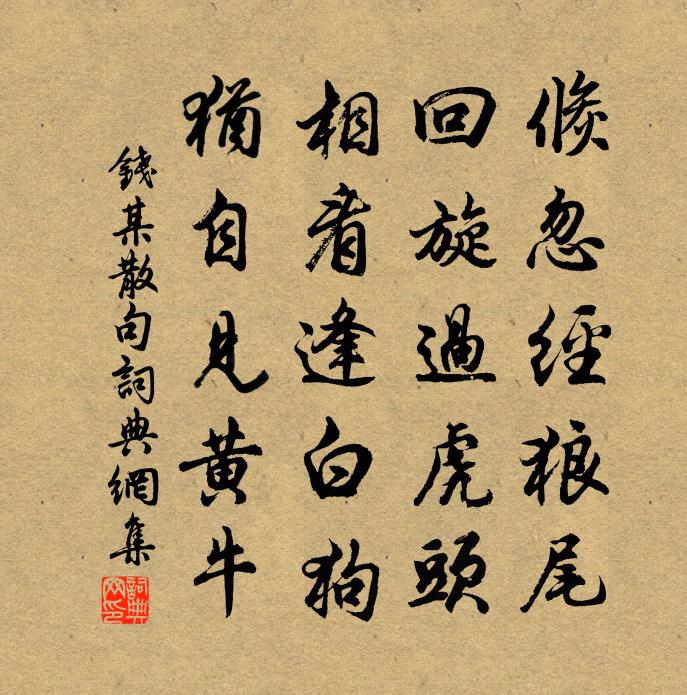 倐忽經狼尾
回旋過虎頭
相看逢白狗
猶自見黃牛
錢某散句詞典網集
詞典网印